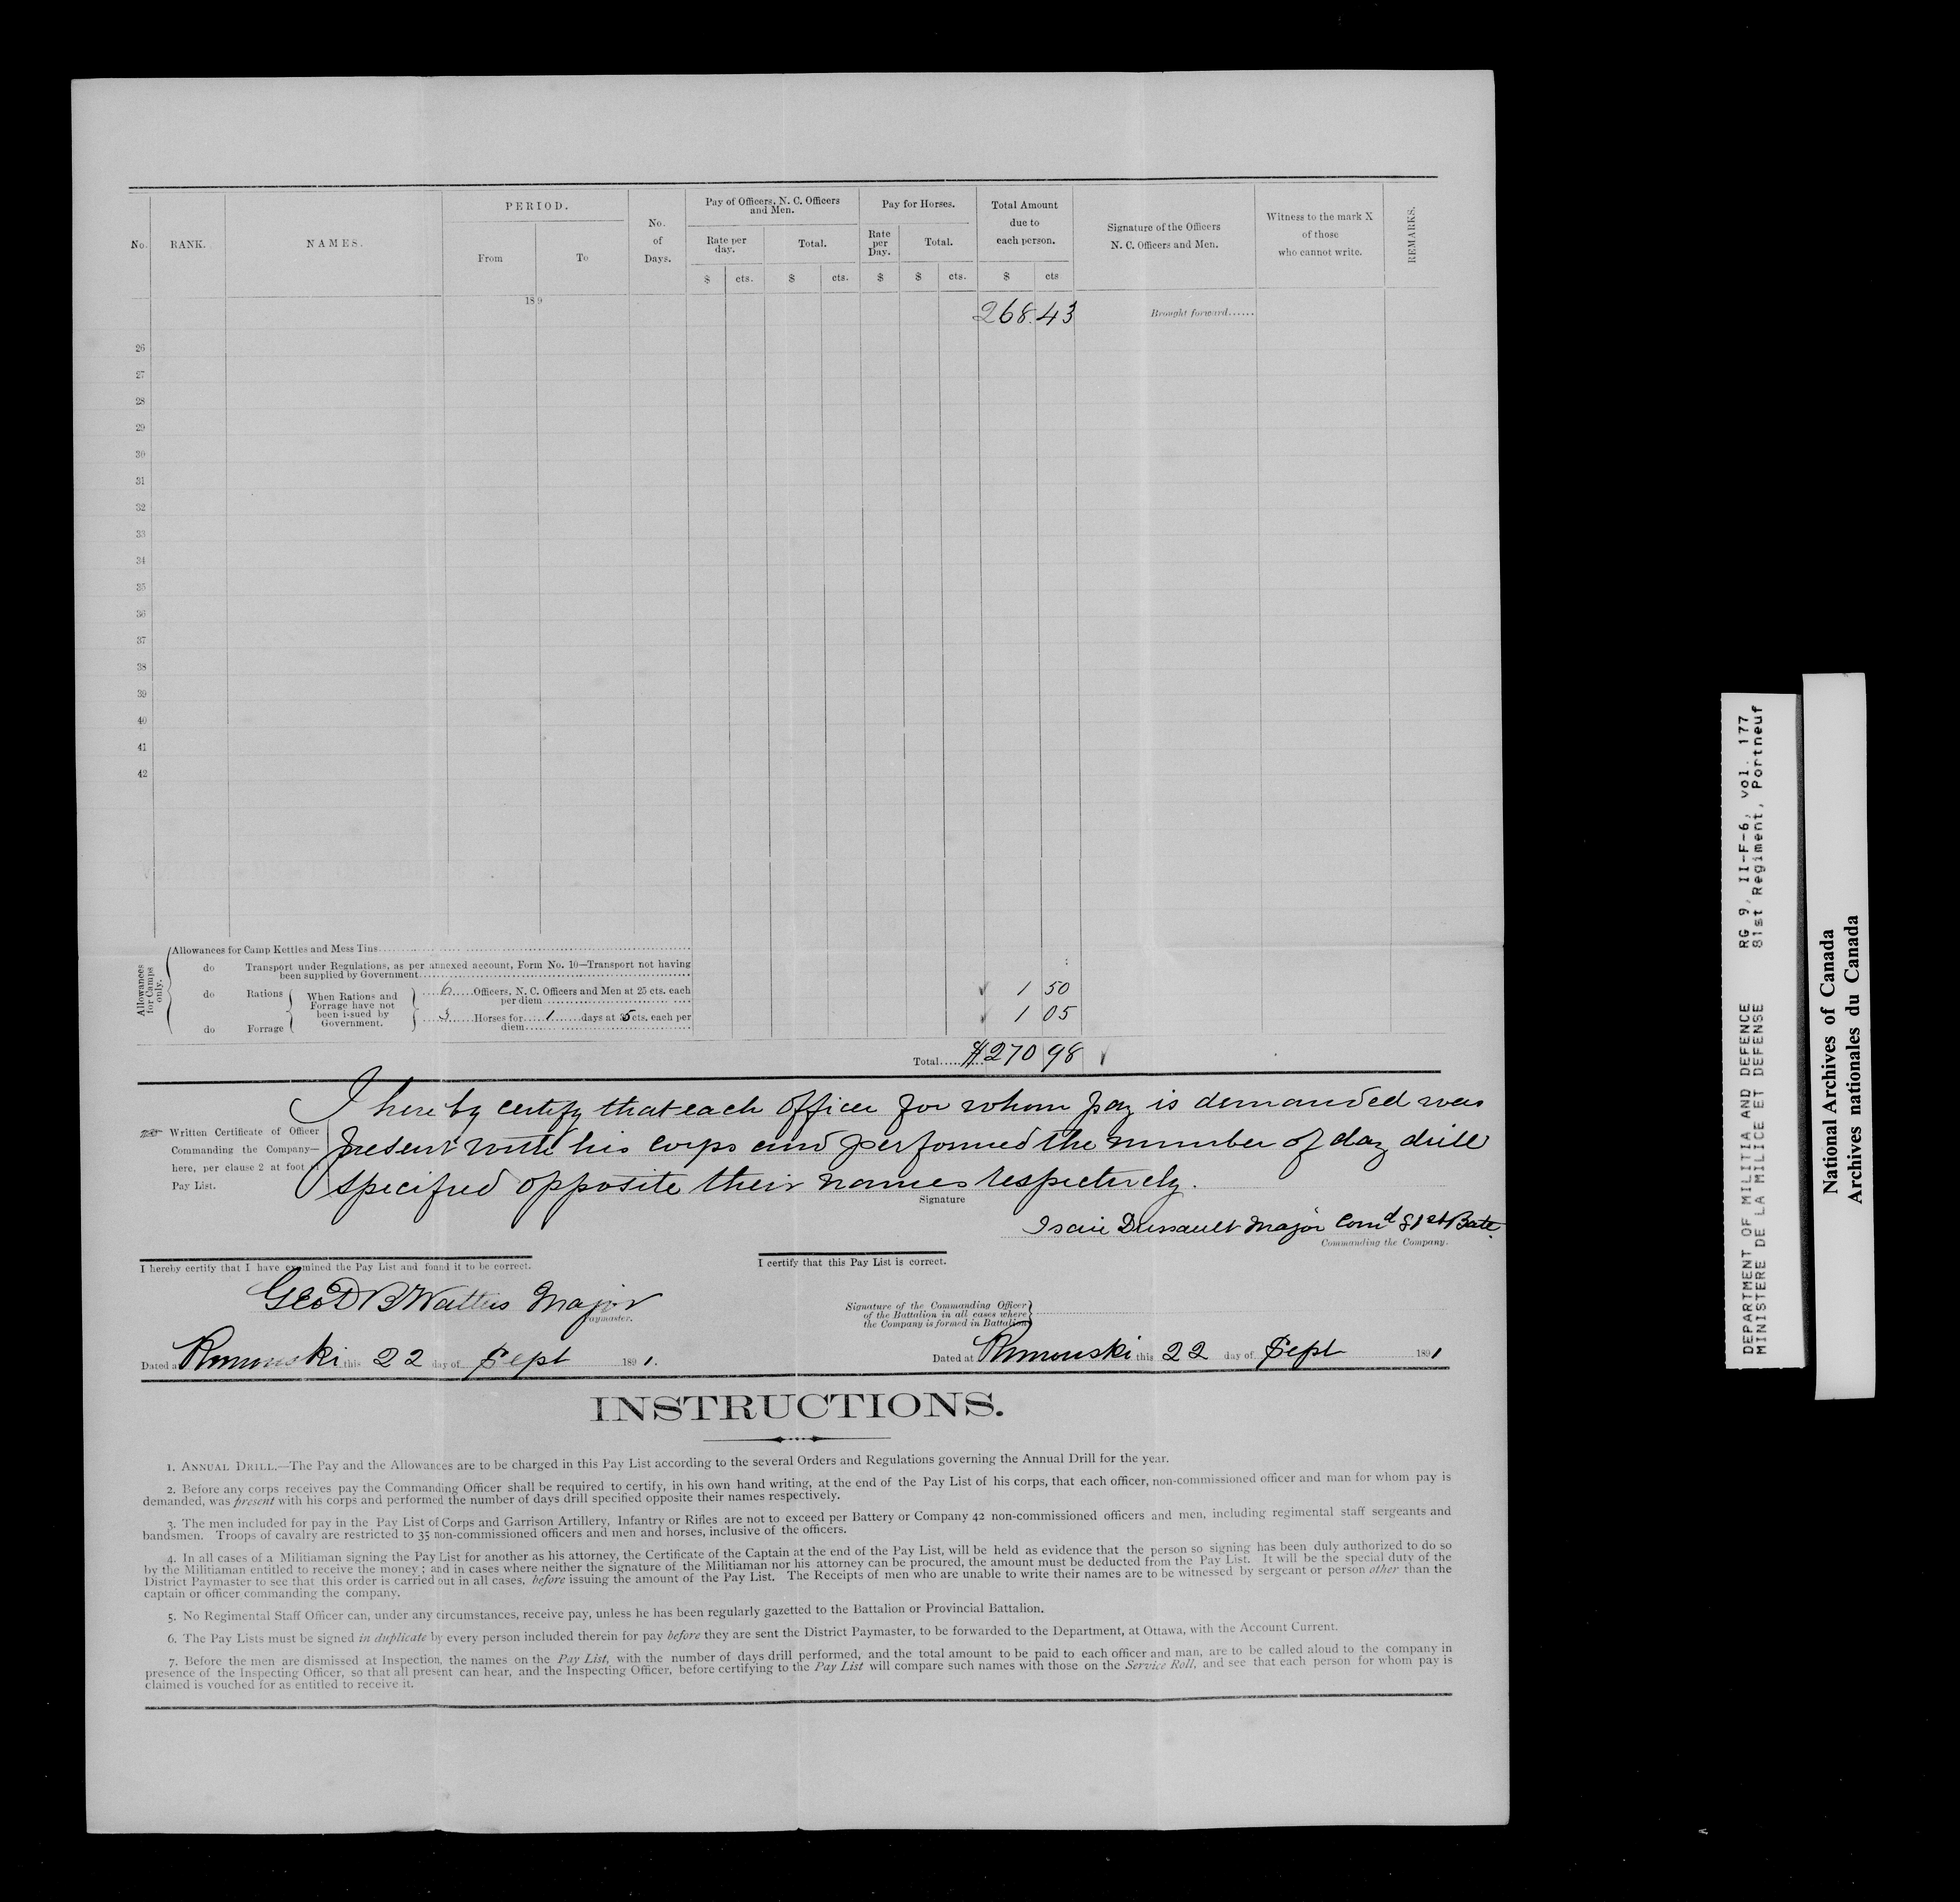 No.
RANK.
NAMES.
PERIOD.
From
To
No.
of
Days.
Pay of Officers, N. C. Officers
and Men.
Rate per
day.
Total.
Pay for Horses.
Rate
per
Day.
Total.
Total Amount
due to
each person.
Signature of the Officers
N. C. Officers and Men.
Witness to the mark X
of those
who cannot write.
REMARKS.
$ cts. $ cts. $ $ cts. $ cts
189
268.43 Brought forward......
26
27
28
29
30
31
32
33
34
35
36
37
38
39
40
41
42
Allowances
for Camps
only.
Allowances for Camp Kettles and Mess Tins
do Transport under Regulations, as per annexed account, Form No. 10—Transport not having
been supplied by Government
do Rations
When Rations and
Forrage have not
been issued by
Government.
6 Officers, N. C. Officers and Men at 25 cts. each
per diem
1 50
do Forrage
3 Horses for 1 days at 35 cts. each per
diem
1 05
Total $270 98
Written Certificate of Officer
Commanding the Company—
here, per clause 2 at foot of
Pay List.
I hereby certify that each officer for whom pay is demanded was
present with his corps and performed the number of day drill
specified opposite their names respectively.
Signature
Isaie Dussault Major Comd 81st Batt.
Commanding the Company.
I hereby certify that I have examined the Pay List and found it to be correct.
Geo D B Watters Major
Paymaster.
I certify that this Pay List is correct.
Signature of the Commanding Officer
of the Battalion in all cases where
the Company is formed in Battalion
Dated at Rimouski this 22 day of Sept 1891.
Dated at Rimouski this 22 day of Sept 1891
INSTRUCTIONS.
1. ANNUAL DRILL.—The Pay and the Allowances are to be charged in this Pay List according to the several Orders and Regulations governing the Annual Drill for the year.
2. Before any corps receives pay the Commanding Officer shall be required to certify, in his own hand writing, at the end of the Pay List of his corps, that each officer, non-commissioned officer and man for whom pay is
demanded, was present with his corps and performed the number of days drill specified opposite their names respectively.
3. The men included for pay in the Pay List of Corps and Garrison Artillery, Infantry or Rifles are not to exceed per Battery or Company 42 non-commissioned officers and men, including regimental staff sergeants and
bandsmen. Troops of cavalry are restricted to 35 non-commissioned officers and men and horses, inclusive of the officers.
4. In all cases of a Militiaman signing the Pay List for another as his attorney, the Certificate of the Captain at the end of the Pay List, will be held as evidence that the person so signing has been duly authorized to do so
by the Militiaman entitled to receive the money ; and in cases where neither the signature of the Militiaman nor his attorney can be procured, the amount must be deducted from the Pay List. It will be the special duty of the
District Paymaster to see that this order is carried out in all cases, before issuing the amount of the Pay List. The Receipts of men who are unable to write their names are to be witnessed by sergeant or person other than the
captain or officer commanding the company.
5. No Regimental Staff Officer can, under any circumstances, receive pay, unless he has been regularly gazetted to the Battalion or Provincial Battalion.
6. The Pay Lists must be signed in duplicate by every person included therein for pay before they are sent the District Paymaster, to be forwarded to the Department, at Ottawa, with the Account Current.
7. Before the men are dismissed at Inspection, the names on the Pay List, with the number of days drill performed, and the total amount to be paid to each officer and man, are to be called aloud to the company in
presence of the Inspecting Officer, so that all present can hear, and the Inspecting Officer, before certifying to the Pay List will compare such names with those on the Service Roll, and see that each person for whom pay is
claimed is vouched for as entitled to receive it.
DEPARTMENT OF MILITIA AND DEFENCE RG 9, II-F-6, vol. 177
MINISTERE DE LA MILICE ET DEFENSE 81st Regiment, Portneuf
National Archives of Canada
Archives nationales du Canada